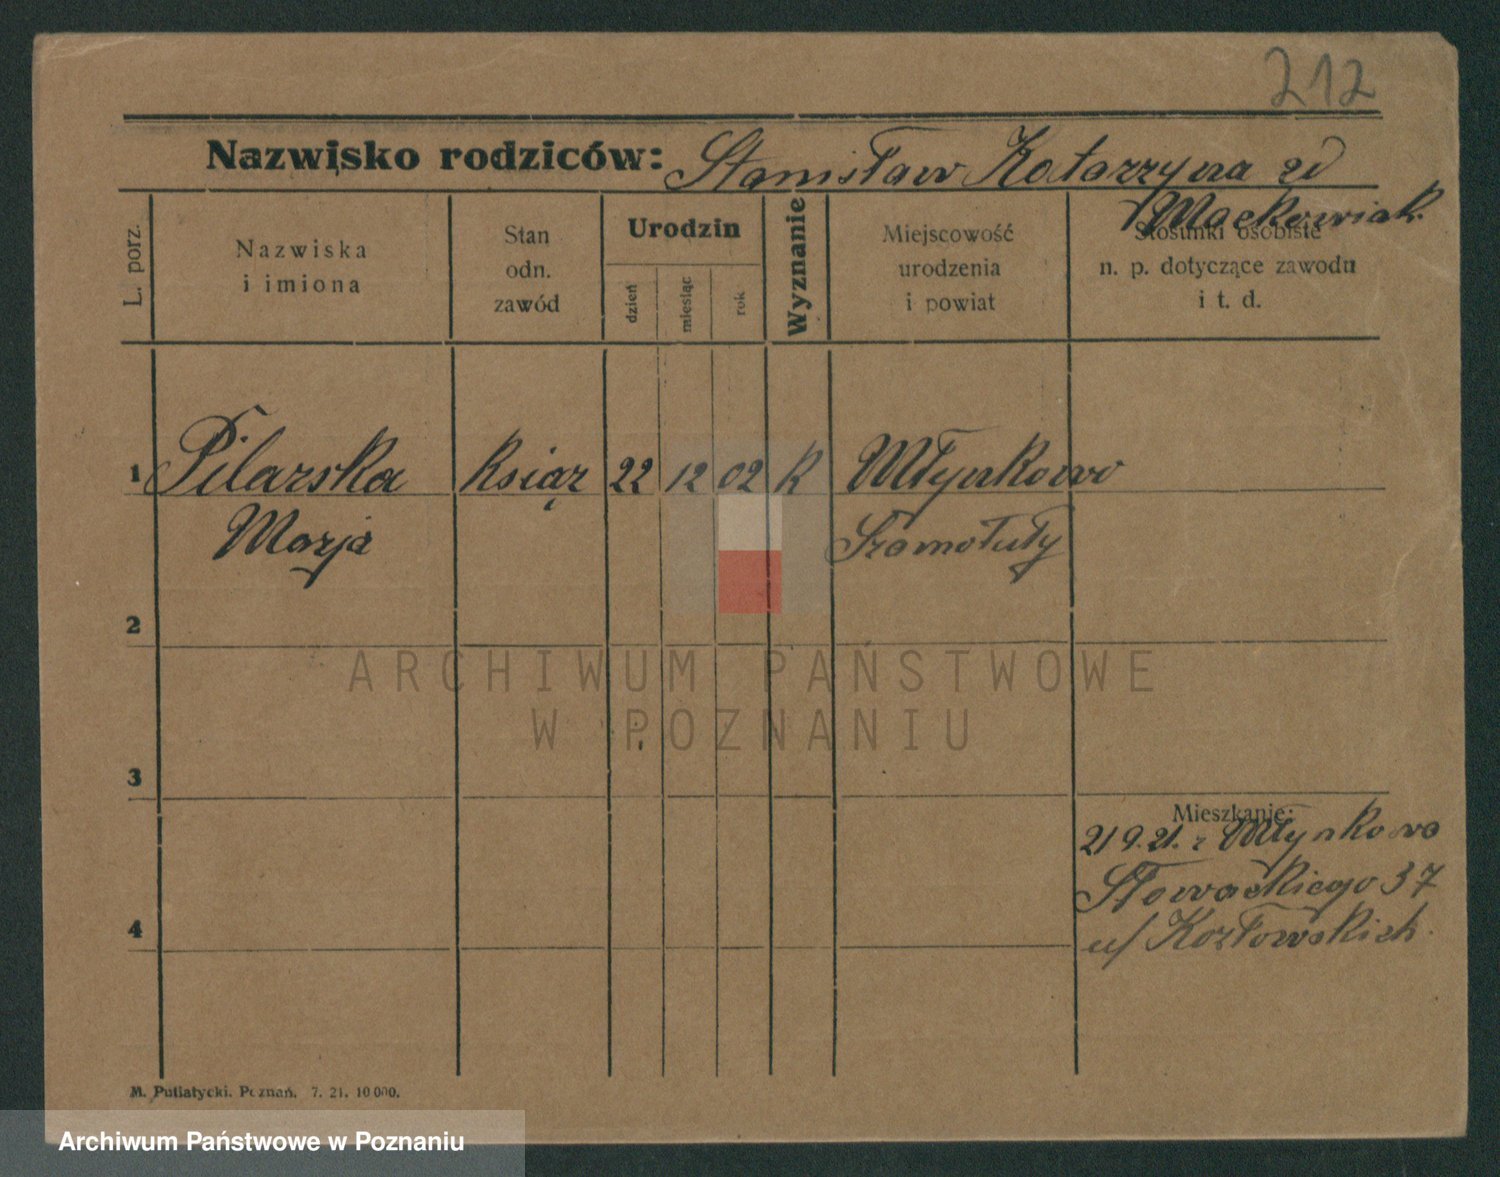 212
Nazwisko rodziców: Stanisław Katarzyna zd
Maćkowiak
L. porz.
Nazwiska
i imiona
Stan
odn.
zawód
Urodzin
dzień
miesiąc
rok
Wyznanie
Miejscowość
urodzenia
i powiat
Stosunki osobiste
n. p. dotyczące zawodu
i t. d.
1 Pilarska Książ 22 12 02 k Młynkowo
Marja Szamotuły
2
ARCHIWUM PAŃSTWOWE
W POZNANIU
3
Mieszkanie:
21 9. 21. z Młynkowo
Słowackiego 37
4
u/ Kozłowskich.
M. Putiatycki. Poznań. 7. 21. 10 000.
Archiwum Państwowe w Poznaniu